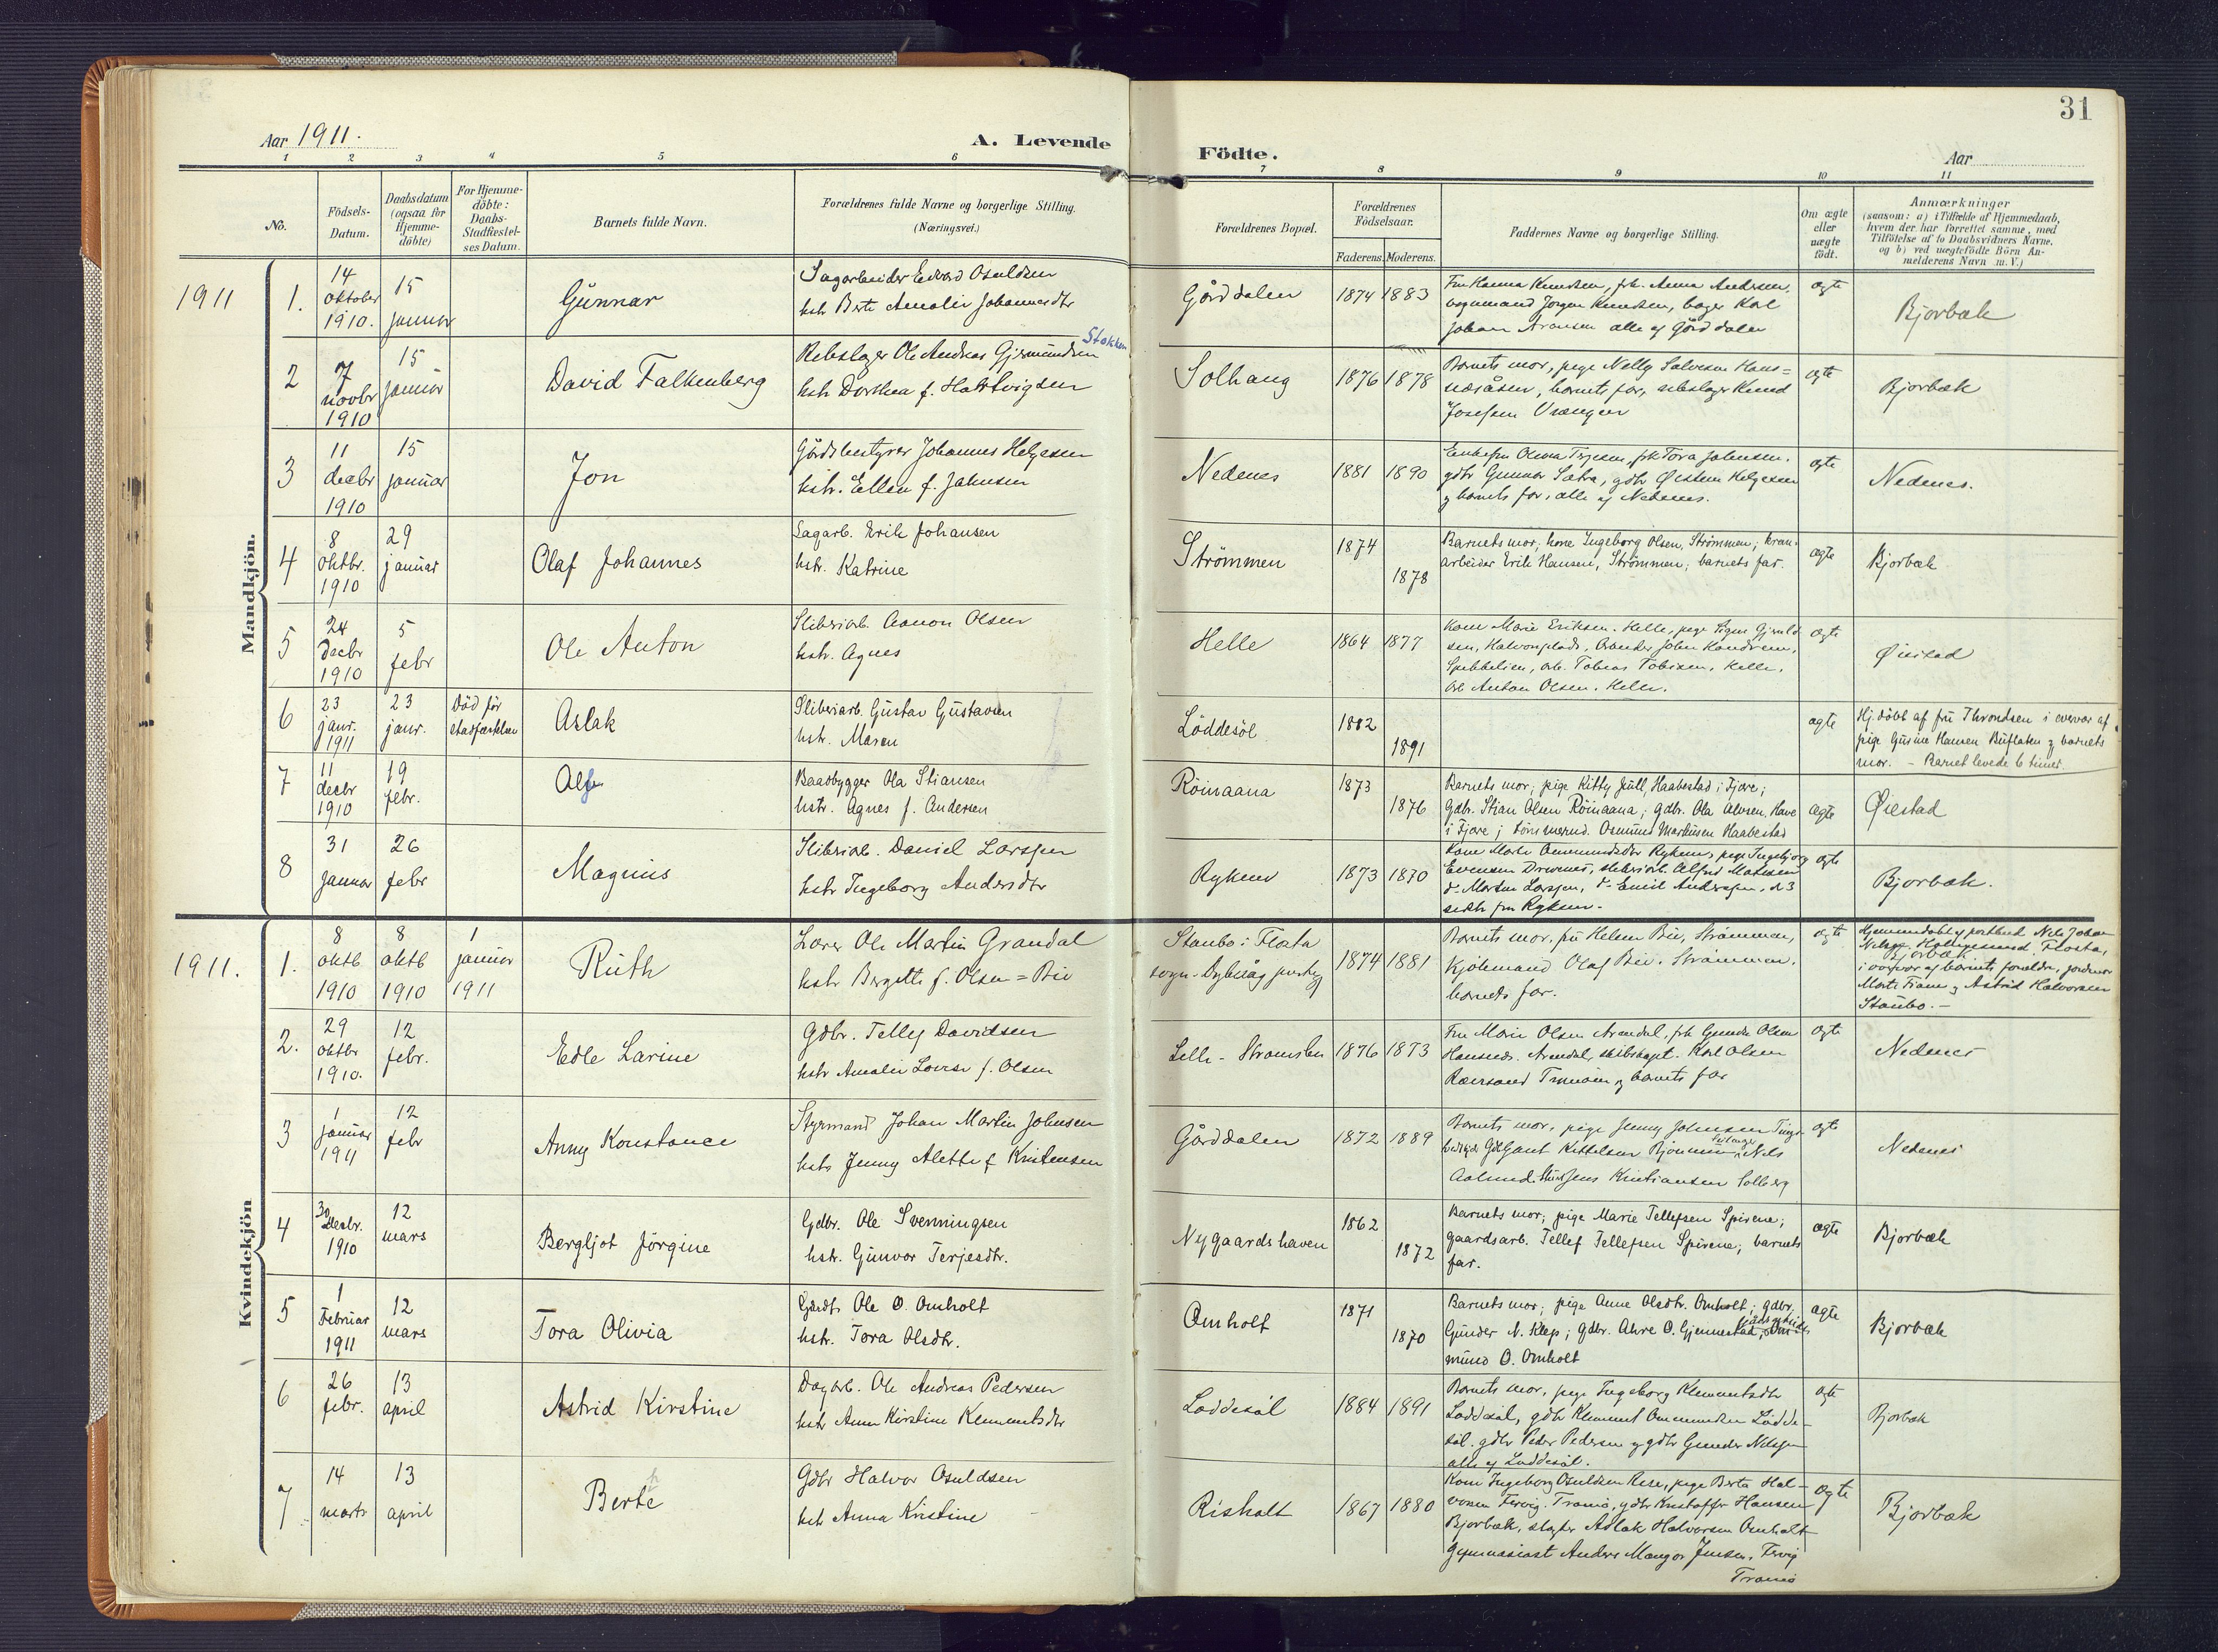 31
Aar 1911.
A. Levende
Födte.
Aar
1 2 3 4 5 6 7 8 9 10 11
No.
Födsels-
Datum.
Daabsdatum
(ogsaa for
Hjemme-
döbte)
For Hjemme-
döbte:
Daabs-
Stadfæstel-
ses Datum.
Barnets fulde Navn.
Forældrenes fulde Navne og borgerlige Stilling.
(Næringsvei.)
Forældrenes Bopæl.
Forældrenes
Födselsaar.
Faderens. Moderens.
Faddernes Navne og borgerlige Stilling.
Om ægte
eller
uægte
födt.
Anmærkninger
(saasom: a) i Tilfælde af Hjemmedaab,
hvem der har forrettet samme, med
Tilföielse af to Daabsvidners Navne.
og b) ved uægtefödte Börn An-
melderens Navn m. V.)
Mandkjön.
1911
1.
14
oktober
1910.
15
januar
Gunnar
Sagarbeider Edvard Osuldsen
hstr Berte Amalie Johannesdtr
Gårddalen
1874 1883
Fru Hanna Knudsen, frk. Anna Andersen,
vognmand Jørgen Knudsen, bager Karl
Johan Aronsen alle af Gårddalen
ægte
Bjorbæk
2
7
novbr
1910
15
januar
David Falkenberg
Rebslager Ole Andreas Gjermundsen
Stokken
hstr Dorthea f. Hartvigsen
Solhaug
1876 1878
Barnets mor, pige Nelly Salvesen Hans=
næsåsen, barnets far, rebslager Knud
Josefsen Vrængen
ægte
Bjorbæk
3
11
decbr
1910
15
januar
Jon
Gårdsbestyrer Johannes Helgesen
hstr. Ellen f. Johnsen
Nedenes
1881 1890
Enkefru Olena Terjesen, frk Tora Johnsen,
gdbr Gunnar Sætra, gdbr Øistein Helgesen
og barnets far, alle af Nedenes.
ægte
Nedenes.
4
8
oktbr.
1910
29
januar
Olaf Johannes
Sagarb. Erik Johansen
hstr. Katrine
Strömmen
1874
1878
Barnets mor, kone Ingeborg Olsen, Strömmen; kran-
arbeider Erik Hansen, Strömmen; barnets far.
ægte
Bjorbæk
5
24
decbr
1910
5
febr
Ole Anton
Sliberiarb. Aanon Olsen
hstr. Agnes
Helle
1864 1877
Kone Marie Eriksen. Helle, pige Signe Gjeruld-
sen, Halvorsplads, Arbeider John
arb. Tobias Tobisen, Helle,
Arb Anton Olsen. Helle.
ægte
Øiestad
6
23
janr.
1911
23
janr.
Död för
stadfæstelsen
Aslak
Sliberiarb. Gustav Gustavsen
hstr. Maren
Löddesöl
1882
1891
ægte
Hj.döbt af fru Throndsen i overvær af
pige Gusine Hansen Buflaten og barnets
mor. - Barnet levede 6 timer.
7
11
decbr
1910
19
febr.
Alf
Baadbygger Ola Stiansen
hstr. Agnes f. Andersen
Röinaana
1873
1876
Barnets mor; pige Kitty Juell, Haabestad i Fjære;
Gdbr. Stian Olsen Röinaana; gdbr. Ola Alvsen, Have
i Fjære; tömmermd. Osmund Markusen Haabestad
ægte
Øiestad
8
31
januar
26
febr
Magnus
Sliberiarb. Daniel Larssen
hstr Ingeborg Andersdtr
Ryken
1873 1870
Kone Marte Ommundsdtr Ryken, pige Ingebjorg
Evensen sliberiarb. Alfred Madsen
do Morten Larssen, do Emil Andersen, de 3
sidste fra Ryken.
ægte
Bjorbæk.
Kvindekjön
1911.
1.
8
oktb
1910
8
oktb
1910
1
januar
1911
Ruth
Lærer Ole Martin Grandal
hstr Bergitte f. Olsen = Bie
Staubo i Flosta
sogn - Dybvåg prestegj
1874 1881
Barnets mor, fru Helene Bie, Strömmen,
Kjöbmand Olaf Bie, Strömmen,
barnets far.
ægte
Hjemmedøbt af postbud Nils Johan
Nilssen Flosta,
Bjorbæk
i overvær af barnets forældre, jordmor
Marte og Astrid Halvorsen
Staubo.-
2.
29
oktbr
1910.
12
febr.
Edle Larine
Gdbr. Tellef Davidsen
hstr Amalie Lovise f. Olsen
Lille - Strömsbu
1876 1873
Fru Marie Olsen Arendal, frk Gunda Olsen
Arendal, skibskapt. Karl Olsen
Tromøen og barnets far
ægte
Nedenes
3
1
januar
1911
12
febr
Anny Konstance
Styrmand Johan Martin Johnsen
hstr Jenny Alette f Kristensen
Gårddalen
1872 1889
Barnets mor, pige Jenny Johnsen
Gaut Kittelsen Nils
Jens Kristiansen Solberg
ægte
Nedenes
4
30
Decbr.
1910
12
mars
Bergljot Jörgine
Gdbr. Ole Svenningsen
hstr. Gunvor Terjesdtr.
Nygaardshaven
1862
1872
Barnets mor; pige Marie Tellefsen Spirene;
gaardsarb. Tellef Tellefsen Spirene; barnets
far.
ægte
Bjorbæk
5
1
Februar
1911
12
mars
Tora Olivia
Ole O. Omholt
hstr. Tora Olsdtr.
Omholt
1871
1870
Barnets mor; pige Anne Olsdtr. Omholt; gdbr.
Gunder N. Klep; gdbr. Ahre O. Gjennestad; Om-
mund O. Omholt
ægte
Bjorbæk
6
26
febr.
13
april
Astrid Kirstine
Dagarb. Ole Andreas Pedersen
hstr Anne Kirstine Klemmetsdtr
Loddesöl
1884 1891
Barnets mor, pige Ingeborg Klemmetsdtr
Loddesöl, gdbr Klemmet Ommundsen Lodde-
söl. gdbr Peder Pedersen og gdbr Gunder Nilssen
alle af Loddesöl.
ægte
Bjorbæk
7
14
marts
13
april
Berte
Gdbr Halvor Osuldsen
hstr Anna Kristine
Risholt
1867 1880
Kone Ingeborg Osuldsen Rise, pige Berta Hal-
vorsen Færvig. Tromö, gdbr Kristoffer Hansen
Bjorbæk, slagter Aslak Halvorsen Omholt
Gymnasiast Anders Mangor Jensen, Færvig
Tromö
ægte
Bjorbæk